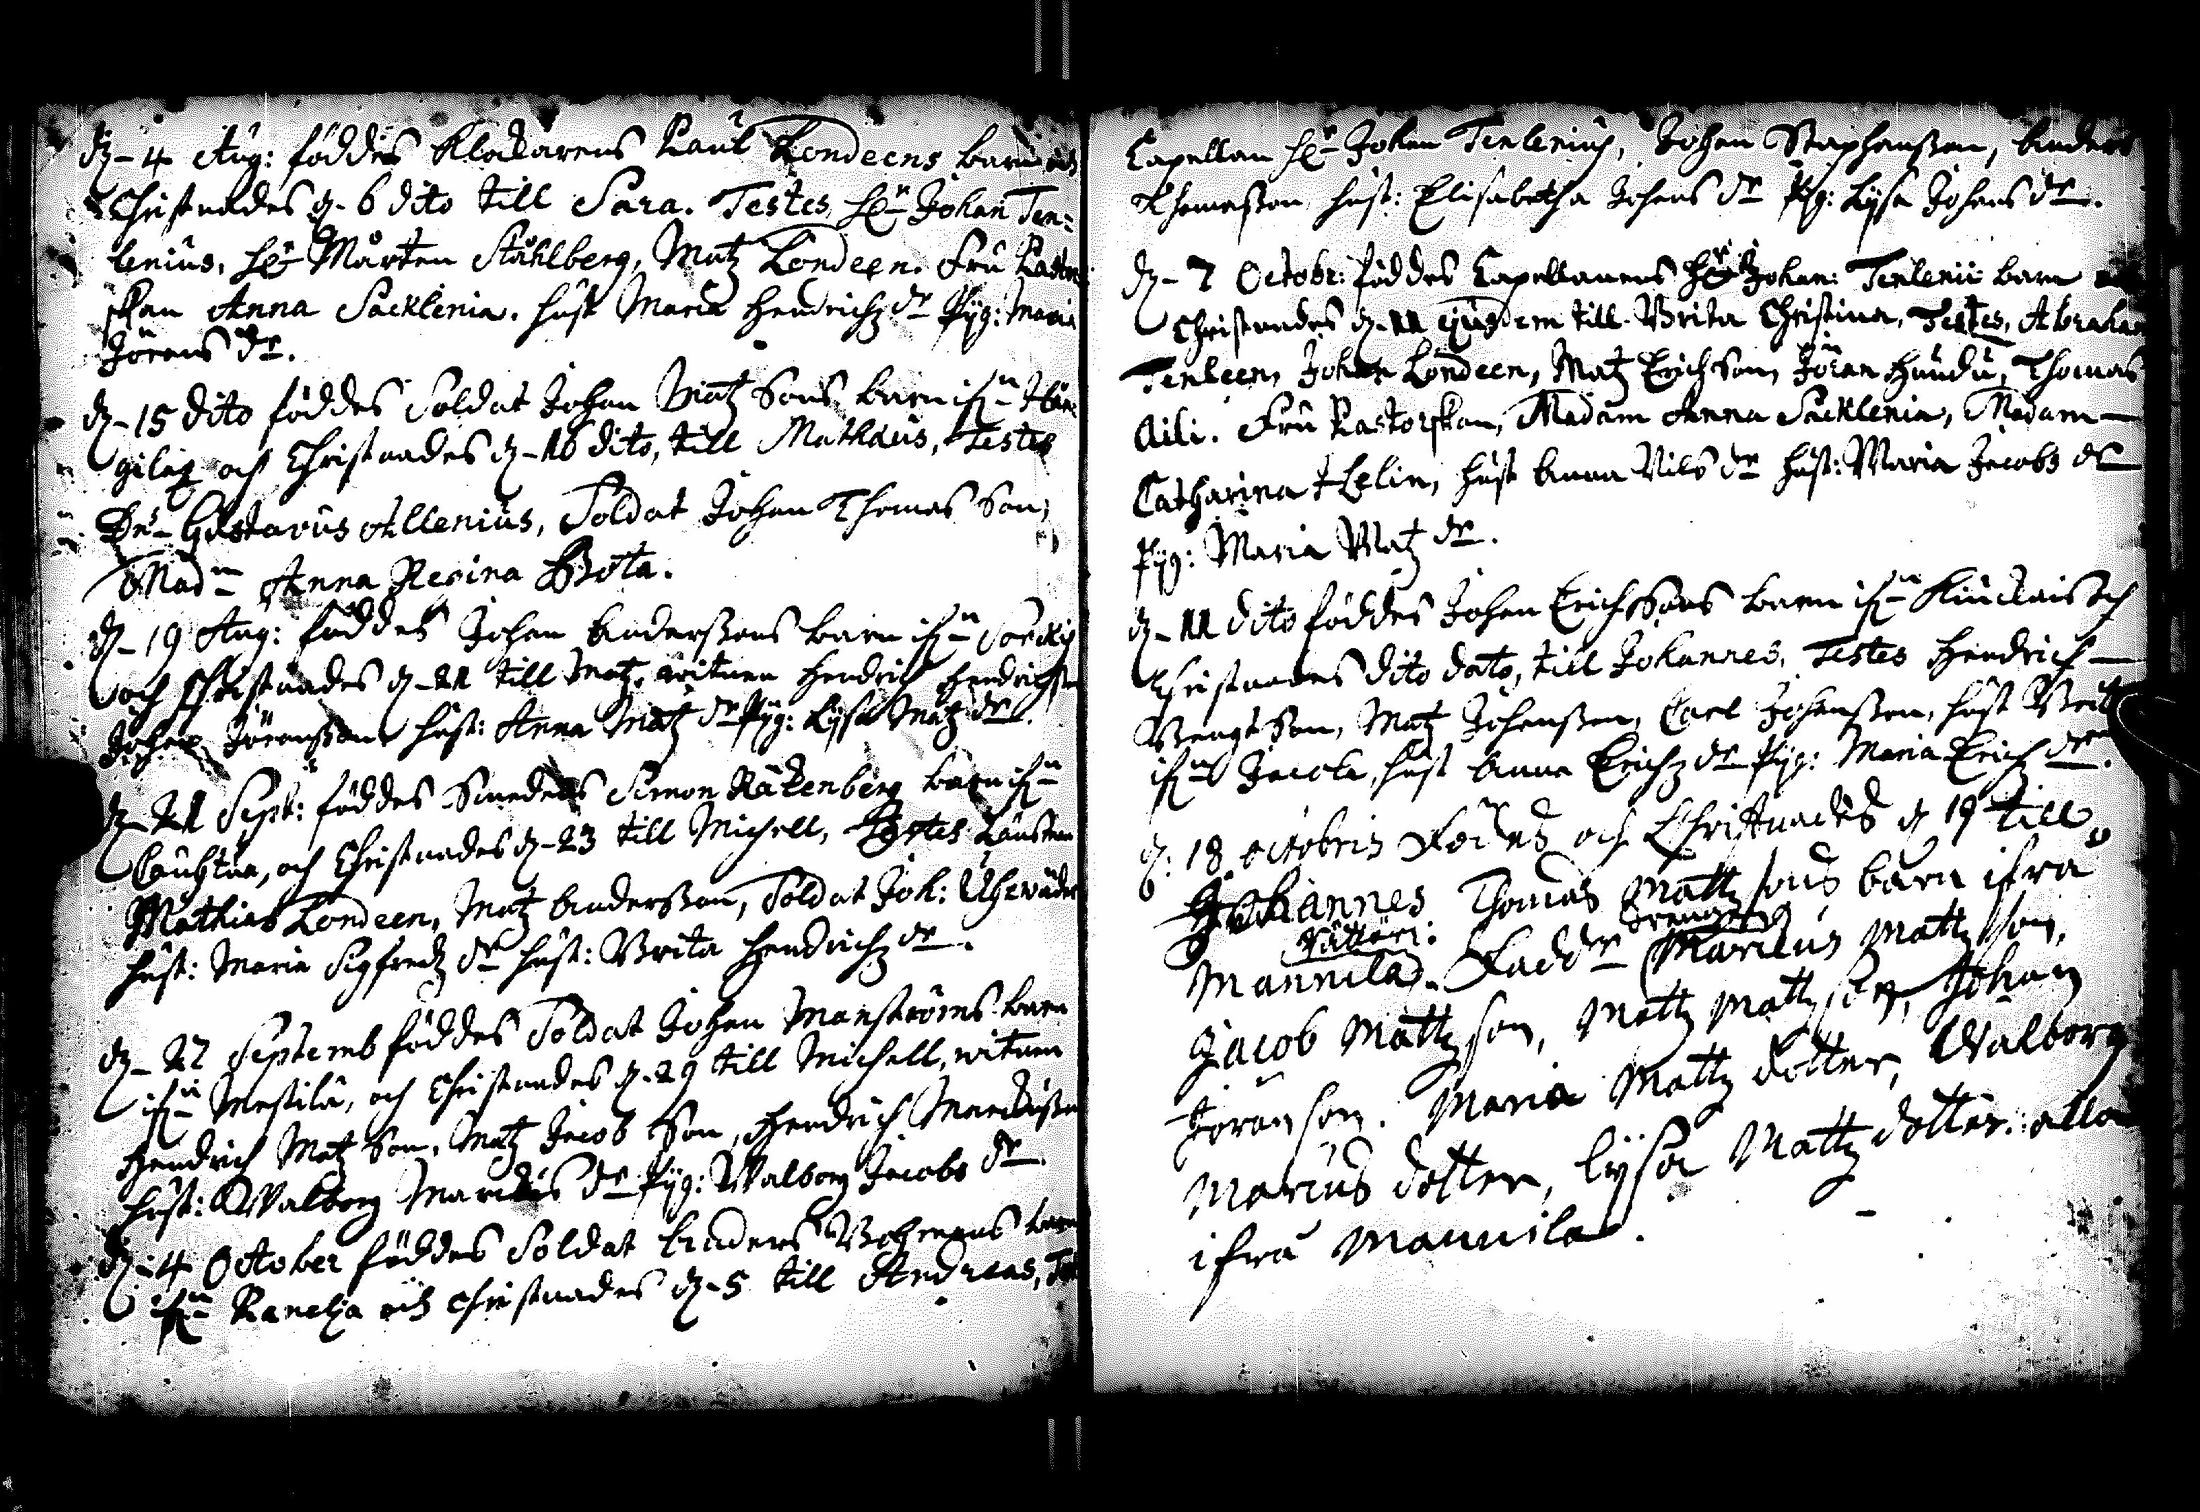 dz 4 Aug: föddes Klockarens Paul Londeens barn och
Christnades dz 6 dito till Sara. Testes, Hr Johan Ten-
lenius, Hr Mårten Ståhlberg, Matz Londeen. Fru Pastor-
skan Anna Sacklenia. hust Maria Hendrichz dr Pyg: Maria
Jörens dr.
dz 15 dito föddes Soldat Johan Matz Sons barn ifrn
och Christnades dz 16 dito, till Mathæus, Testes
Dns Gustavus Allenius, Soldat Johan Thomas Son,
Madm Anna Regina Bota.
dz 19 Aug: föddes Johan Anderssons barn ifrn
och Christnades dz 21 till Matz, witnen Hendrich Hendrichson
Johan Jöransson hust: Anna Matz dr Pyg: Lysa Matz dr.
dz 21 Sept: föddes Smedens Simon Räkenberg barn ifrn
och Christnades dz 23 till Michell, Testes Länsman
Mathias Londeen, Matz Andersson, Soldat Joh:
hust: Maria Sigfredz dr hust: Brita Hendrichz dr.
dz 27 Septemb föddes Soldat Johan Manströms barn
ifrn Mestilä, och Christnades dz 29 till Michell, witnen
Hendrich Matz Son, Matz Jacob Son, Hendrich Marcusson
hust: Walborg Marcus dr Pyg: Walborg Jacobs dr.
dz 4 October föddes Soldat Anders Bohmans barn
ifrn Karelja och christnades dz 5 till Andreas,
Capellan Hr Johan Tenlenius, Johan Staphansson, Anders
Thomasson, hust: Elisabetha Johans dr Pyg: Lysa Johans dr.
dz 7 Octobr: föddes Capellanens Hr Johan: Tenlenii barn
Christnades dz 11 ejusdem till Brita Christina, Testes, Abraham
Tenleen, Johan Londeen, Matz Erichson, Jöran Haudu, Thomas
Aili. Fru Pastorskan, Madam Anna Sacklenia, Madam
Catharina Helin, hust Anna Nils dr hust: Maria Jacobs dr
Pyg: Maria Matz dr.
dz 11 dito föddes Johan Erichsons barn ifrn och
Christnades dito dato, till Johannes, Testes Hendrich
Bengt Son, Matz Johansson, Carl Johansson, hust Brita
ifrn hust Anna Erichz dr Pyg: Maria Erichz dr.
dz: 18 octobris Födes och Christnades dz 19 till
Johannes Thomas Mattz sons barn ifrå
Mannila. Faddr Marcus Mattz son,
Jacob Mattz son, Mattz Mattz son, Johan
Jöran son. Maria Mattz dotter, Walborg
Marcus dotter, Lysa Mattz dotter: alla
ifrå Mannila.